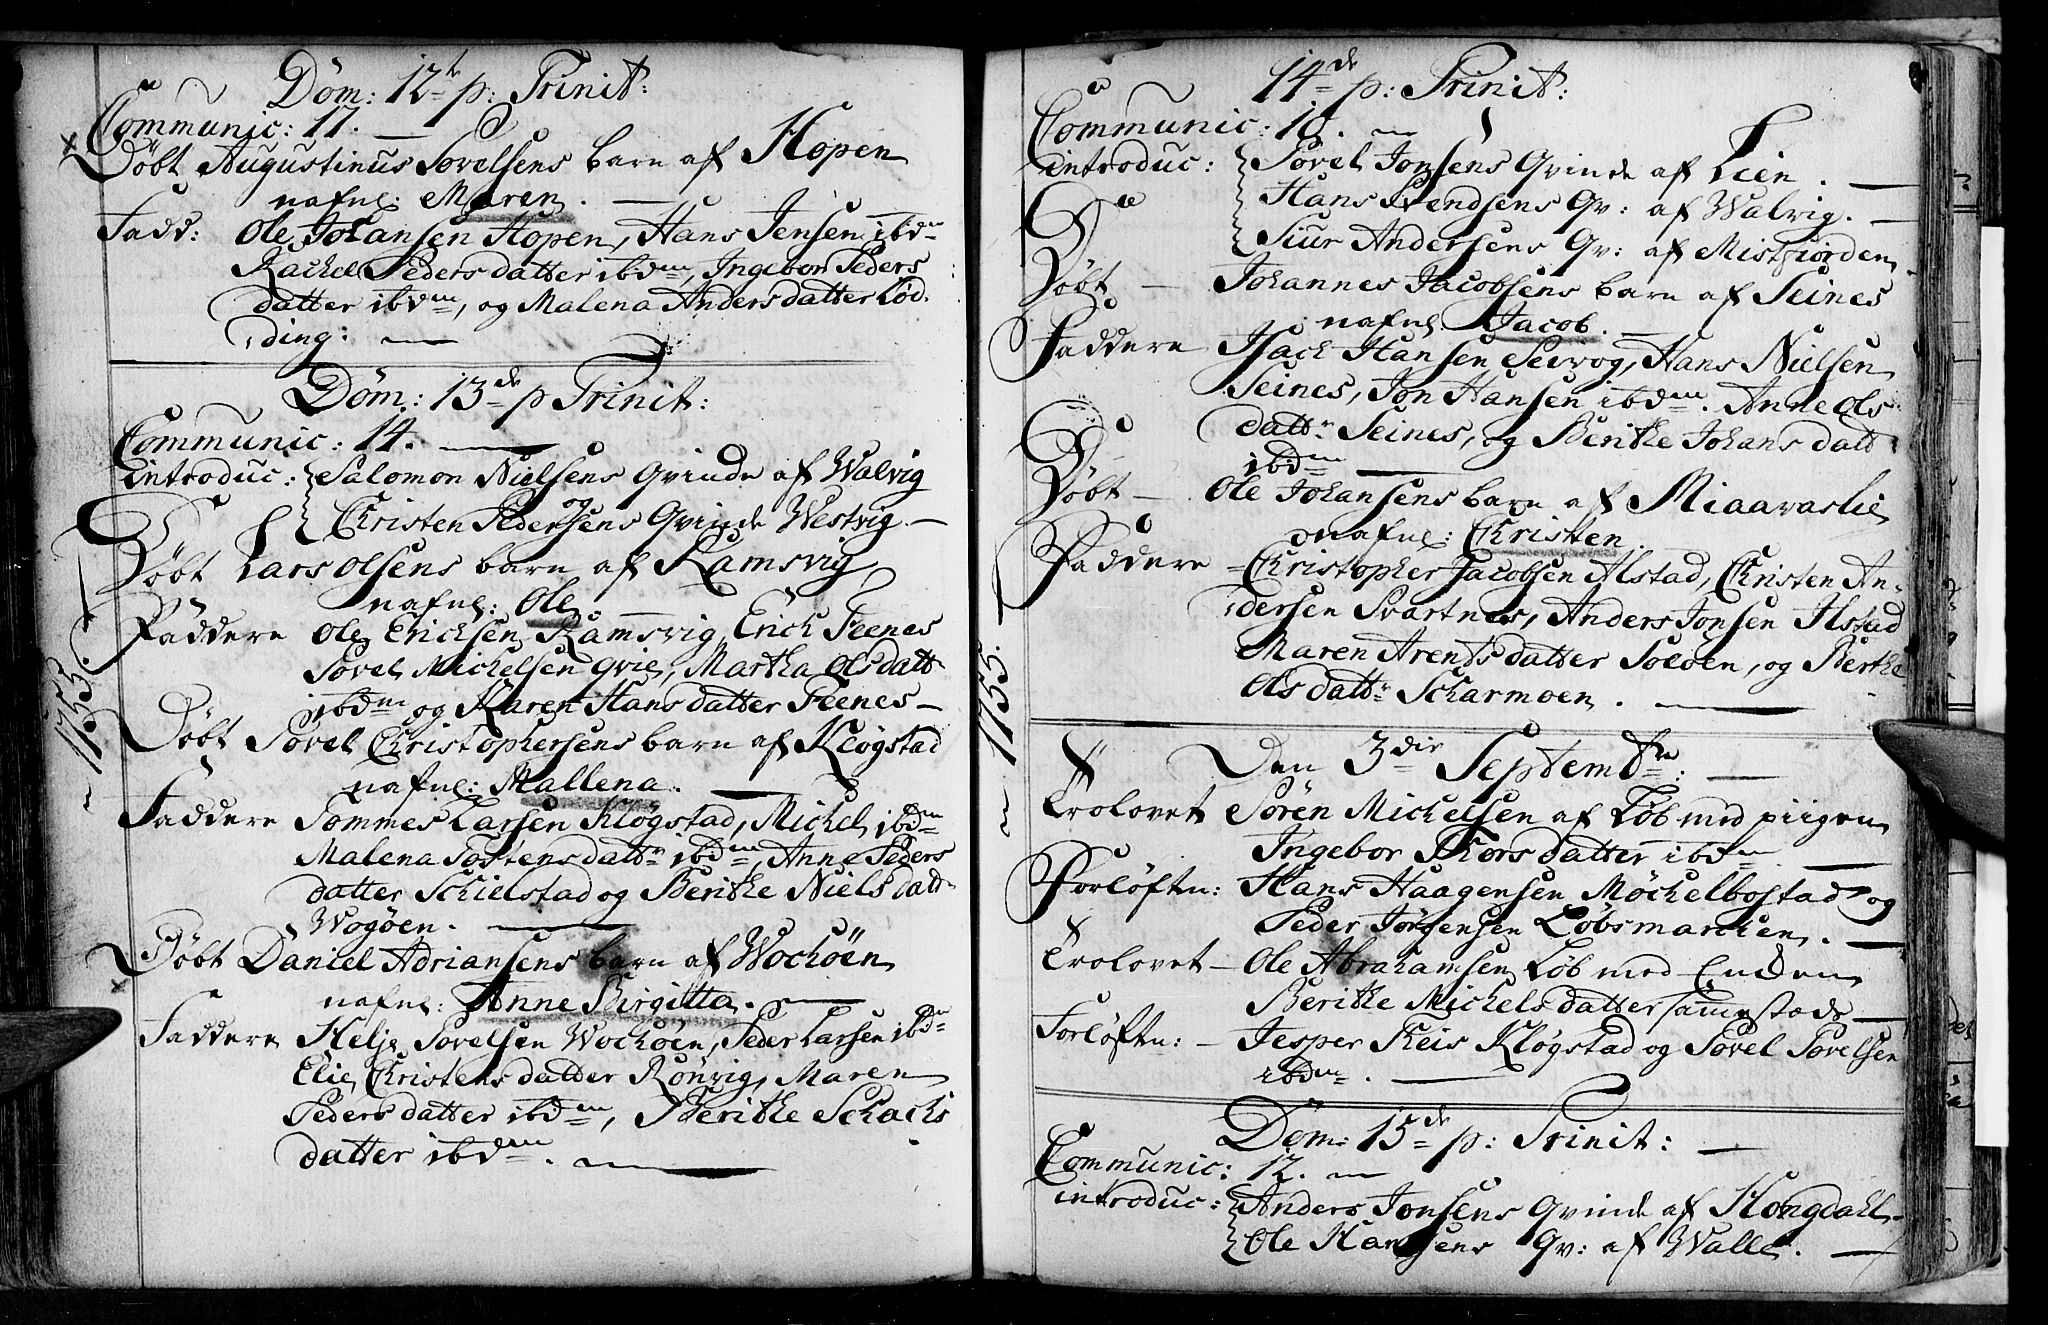 Dom: 12te p: Trinit:
Communic: 17.
Döbt Augustinus Sovelsens barn af Hopen
nafnl: Maren.
Fadd: Ole Johansen Hopen, Hans Jensen ibdm
Rachel Pedersdatter ibdm, Ingebor Peders
datter ibdm, og Malena Andersdatter Löd
ding:
Dom: 13de p Trinit:
Communic: 14.
introduc: Salomon Nielsens Qvinde af Walvig
og
Christen Pedersens Qvinde Westvig.
Döbt Lars Olsens barn af Ramsvig
nafnl: Ole.
Faddere Ole Ericksen Ramsvig, Erich Feenes
Sovel Michelsen Qvie, Martha Olsdatt
ibdm og Karen Hansdatter Feenes
Döbt Sovel Christophersens barn af Kløgstad
nafnl: Mallena.
Faddere Sommes Larsen Kløgstad, Michel ibdm
Malena Tostensdattr ibdm, Anne Peders
datter Schielstad og Berithe Nielsdatt
Wogöen.
Döbt Daniel Adriansens barn af Wochöen
nafnl: Anne Birgitta.
Faddere Helje Sovelsen Wochöen, Peder Larsen ibdm
Elie Christensdatter Rönvig, Maren
Pedersdatter ibdm, Berithe Schachs
datter ibdm.
1755.
14de p: Trinit:
Communic: 10.
introduc: Sovel Jonsens Qvinde af Lien.
Hans Svendsens Qv: af Walvig.
Siur Andersens Qv: af Mistfiorden
Döbt Johannes Jacobsens barn af Seines
nafnl Jacob.
Faddere Isach Hansen Seivog, Hans Nielsen
Seines, Jon Hansen ibdm. Anne Ols
dattr Seines, og Berithe Johansdatt
ibdm
Döbt Ole Johansens barn af Miaavaslie
nafnl: Christen.
Faddere Christopher Jacobsen Alstad, Christen An
dersen Svartnes, Anders Jonsen Ilstad
Maren Arentsdatter Soloen, og Berthe
Olsdattr Scharmoen.
1755.
Den 3die Septembr:
Trolovet Sören Michelsen af Löb med piigen
Ingebor Thorsdatter ibdm
Forlöftn: Hans Haagensen Möchelbostad og
Peder Jörgensen Löbsmarchen.
Trolovet Ole Abrahamsen Löb med Enchen
Berithe Michelsdatter samestads
Forlöftn: Jesper Theis Klögstad og Sovel Sovelsen
ibdm.
Dom: 15de p: Trinit:
Communic: 12.
introduc: Anders Jonsens Qvinde af Hongdahl
Ole Hansens Qv: af Walle.